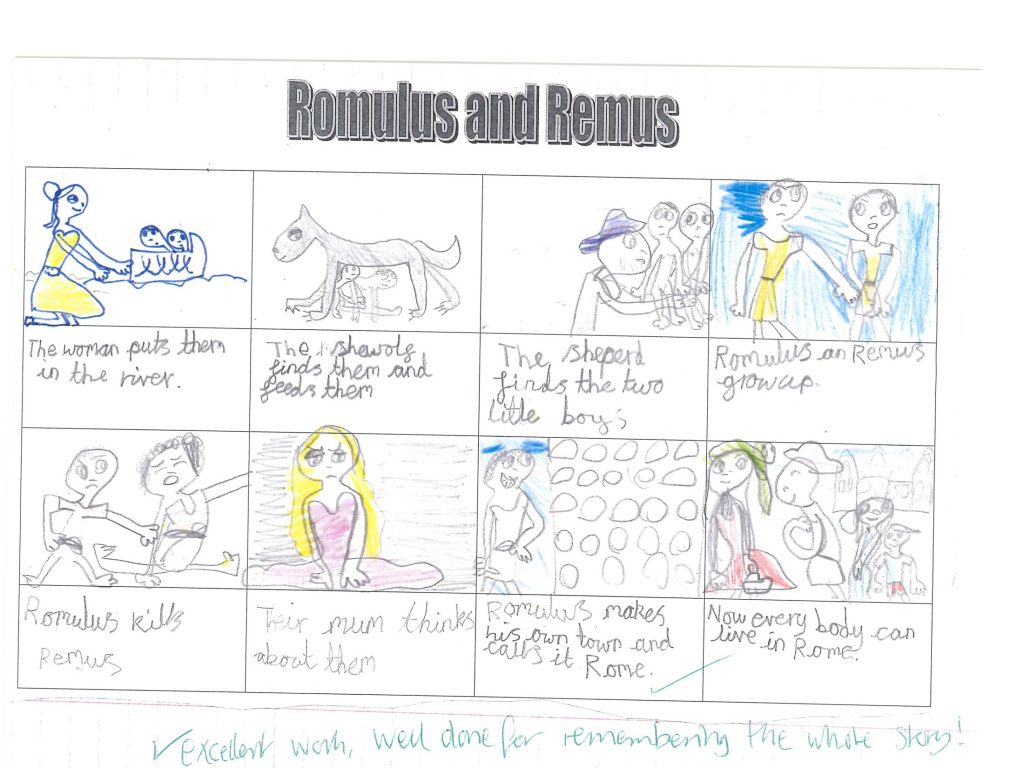 Romulus and Remus
The woman puts them
in the river.
The shewolf
finds them and
feeds them
The sheperd
finds the two
little boys
Romulus an Remus
grow up.
Romulus kills
Remus
Teir mum thinks
about them
Romulus makes
his own town and
calls it Rome.
Now every body can
live in Rome.
✓ Excellent work, well done for remembering the whole story!